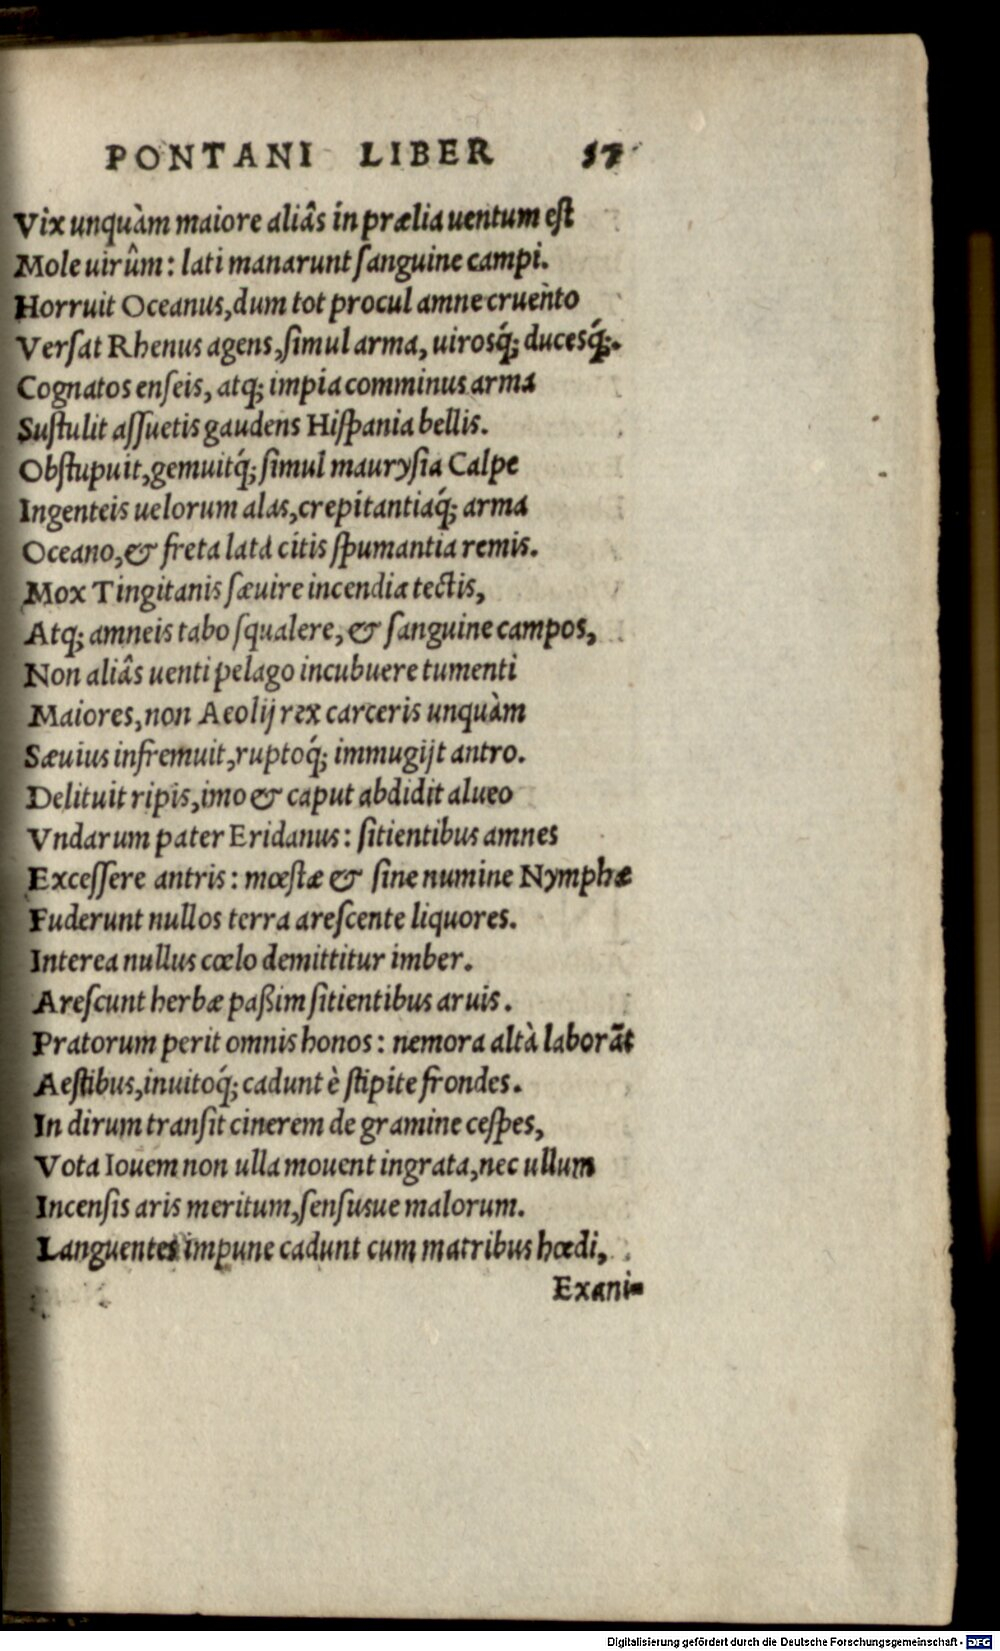 PONTANI LIBER 57
Vix unquàm maiore aliâs in prælia uentum est
Mole uirûm: lati manarunt sanguine campi.
Horruit Oceanus, dum tot procul amne cruento
Versat Rhenus agens, simul arma, uirosq́; ducesq́;.
Cognatos enseis, atq; impia comminus arma
Sustulit assuetis gaudens Hispania bellis.
Obstupuit, gemuitq́; simul maurysia Calpe
Ingenteis uelorum alas, crepitantiaq́; arma
Oceano, & freta lata citis spumantia remis.
Mox Tingitanis sæuire incendia tectis,
Atq; amneis tabo squalere, & sanguine campos,
Non aliâs uenti pelago incubuere tumenti
Maiores, non Aeolij rex carceris unquàm
Sæuius infremuit, ruptoq́; immugijt antro.
Delituit ripis, imo & caput abdidit alueo
Vndarum pater Eridanus: sitientibus amnes
Excessere antris: mœstæ & sine numine Nymphæ
Fuderunt nullos terra arescente liquores.
Interea nullus cœlo demittitur imber.
Arescunt herbæ paßim sitientibus aruis.
Pratorum perit omnis honos: nemora altà laborãt
Aestibus, inuitoq́; cadunt è stipite frondes.
In dirum transit cinerem de gramine cespes,
Vota Iouem non ulla mouent ingrata, nec ullum
Incensis aris meritum, sensusue malorum.
Languentes impune cadunt cum matribus hœdi,
Exani-
Digitalisierung gefördert durch die Deutsche Forschungsgemeinschaft - DFG